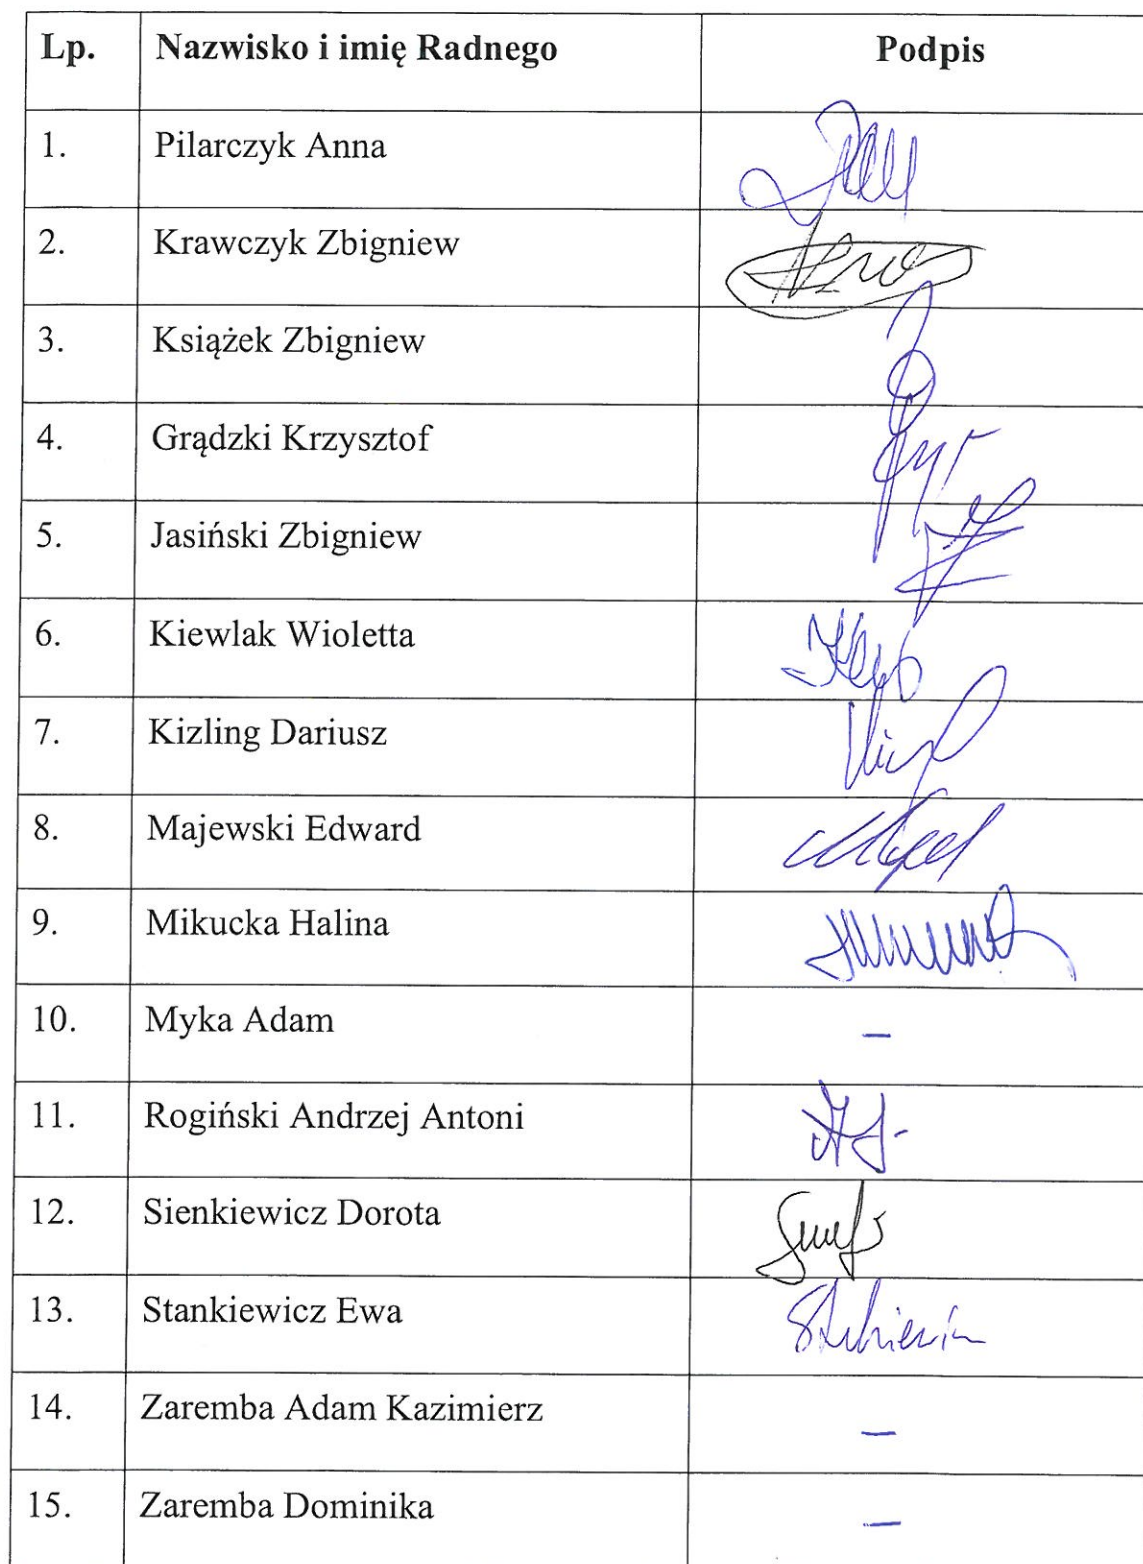 Lp. Nazwisko i imię Radnego Podpis
1. Pilarczyk Anna
2. Krawczyk Zbigniew
3. Książek Zbigniew
4. Grądzki Krzysztof
5. Jasiński Zbigniew
6. Kiewlak Wioletta
7. Kizling Dariusz
8. Majewski Edward
9. Mikucka Halina
10. Myka Adam –
11. Rogiński Andrzej Antoni
12. Sienkiewicz Dorota
13. Stankiewicz Ewa
14. Zaremba Adam Kazimierz –
15. Zaremba Dominika –